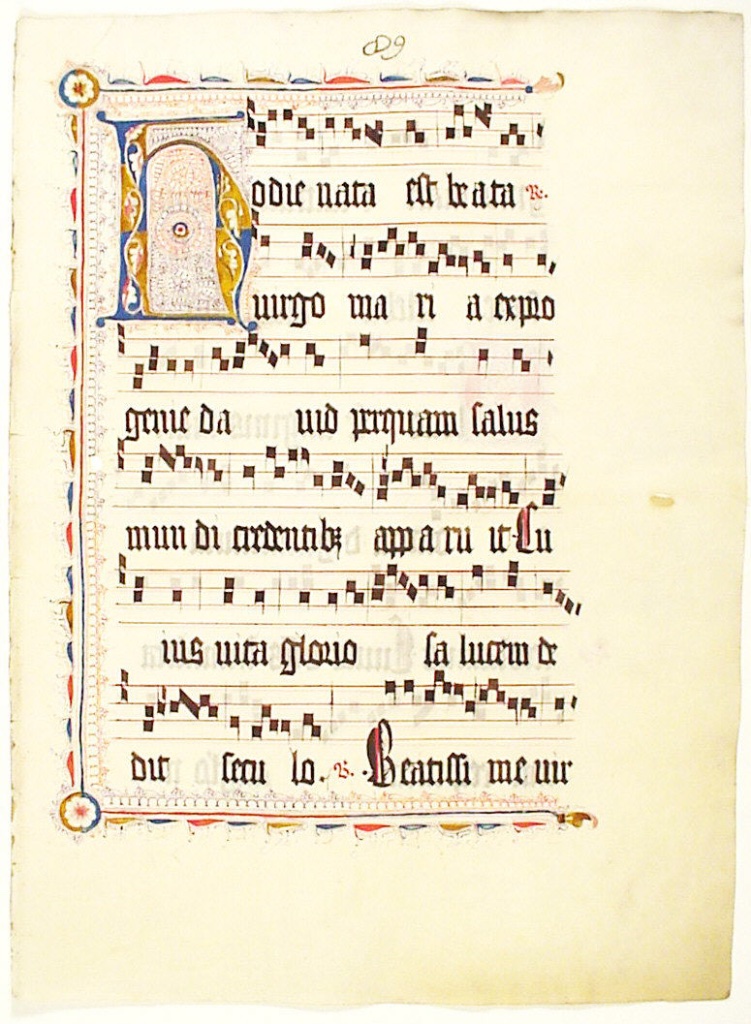 89
Hodie nata est beata ℟.
uirgo ma ri a expro
genie da uid perquam salus
mun di credentibꝫ appa ru it Cu
ius uita glorio sa lucem de
dit secu lo. ℣. Beatissi me uir